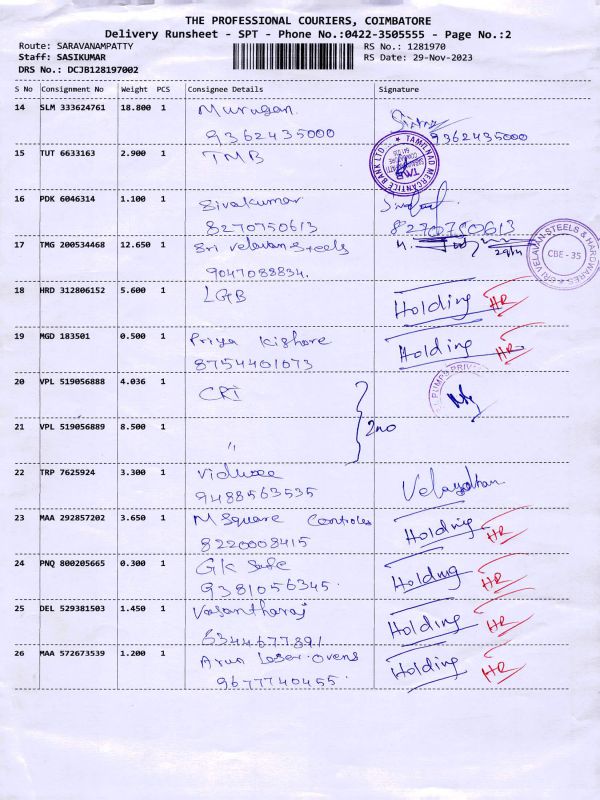 THE PROFESSIONAL COURIERS, COIMBATORE
Delivery Runsheet - SPT - Phone No.:0422-3505555 - Page No.:2
Route: SARAVANAMPATTY RS No.: 1281970
Staff: SASIKUMAR RS Date: 29-Nov-2023
DRS No.: DCJB128197002
S No Consignment No Weight PCS Consignee Details Signature
14 SLM 333624761 18.800 1 Murugan
9362435000 9362435000
15 TUT 6633163 2.900 1 TMB TAMILNAD MERCANTILE BANK LTD TMB
16 PDK 6046314 1.100 1 Sivakumar
8270750613 8270750613
17 TMG 200534468 12.650 1 Sri Velavan Steels
9047088834. SRI VELAVAN STEELS & HARDWARES CBE - 35
18 HRD 312806152 5.600 1 LGB Holding HR
19 MGD 183501 0.500 1 Priya Kishore Holding HR
8754401073
20 VPL 519056888 4.036 1 CRI PUMPS PRIV
21 VPL 519056889 8.500 1 " 2no
22 TRP 7625924 3.300 1
9488563535
23 MAA 292857202 3.650 1 M Square Controles Holding HR
8220008415
24 PNQ 800205665 0.300 1 GK Safe Holding HR
9381056345.
25 DEL 529381503 1.450 1 Vasantharaj Holding HR
6344677891
26 MAA 572673539 1.200 1 Arua Laser Ovens Holding HR
9677740455.